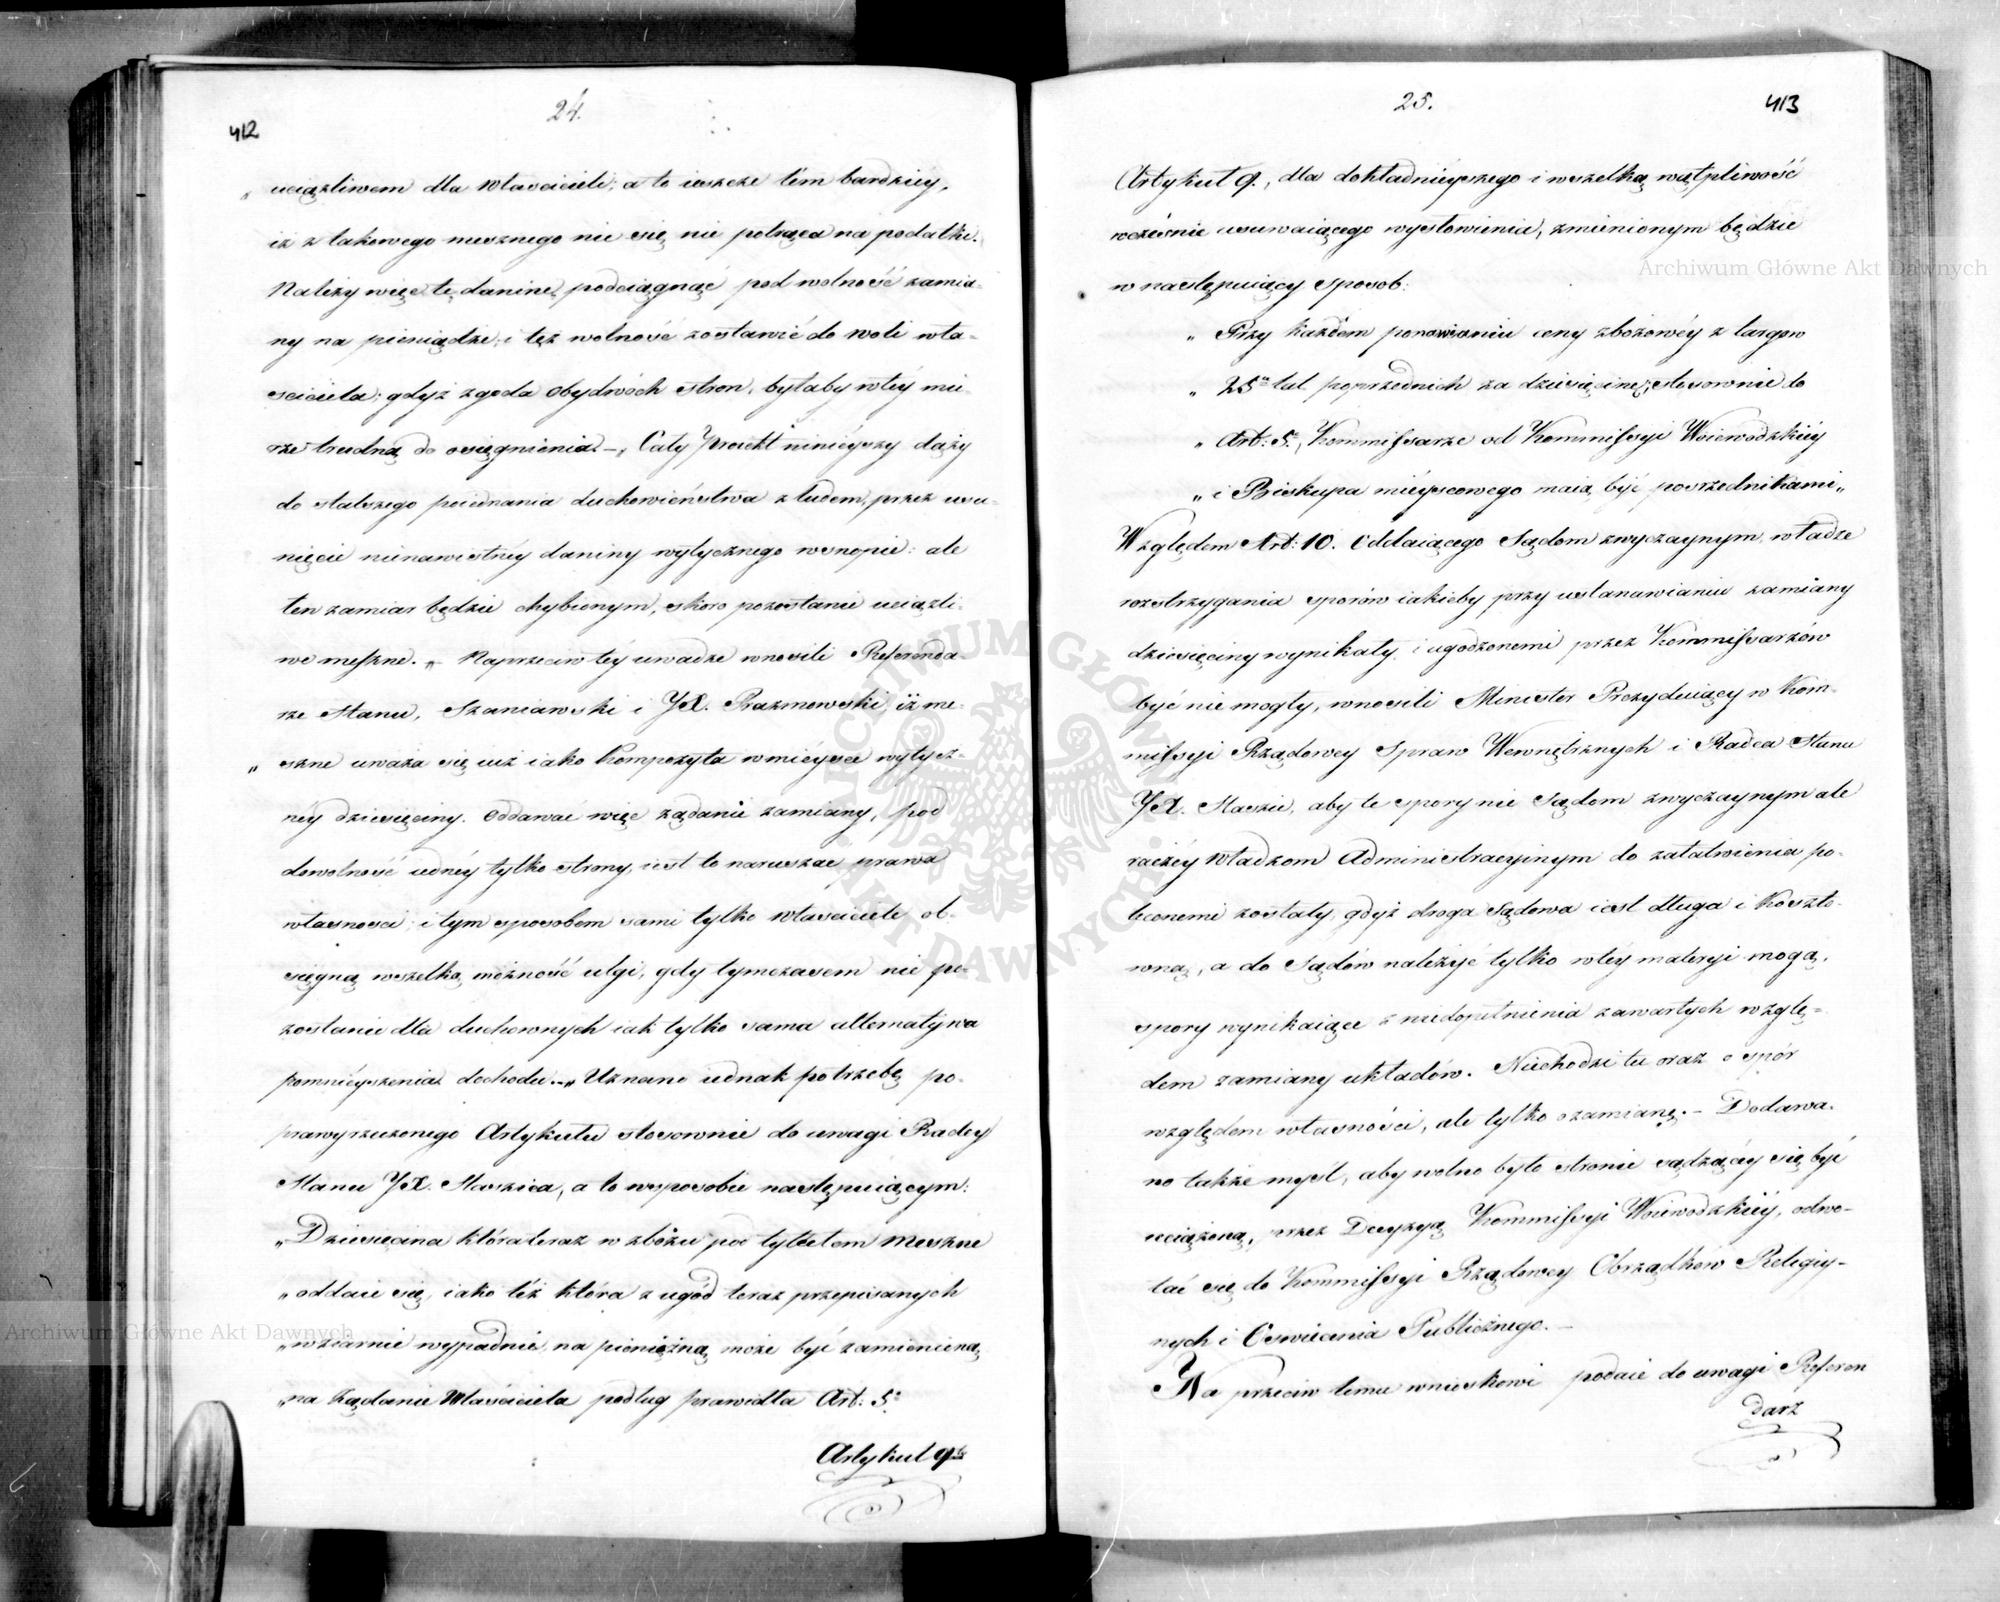 24.
412
„ uciążliwem dla Właścicieli; a to ieszcze tém bardziéy,
iż z takowego mesznego nic się nie potrąca na podatki.
Należy więc tę daninę podciągnąć pod wolność zamia-
ny na pieniądze; i tęż wolność zostawić do woli wła-
ściciela; gdyż zgoda obydwóch stron, byłaby w téy mie-
rze trudną do osiągnienia. — „ Cały Proiekt ninieyszy dąży
do stalszego poiednania duchowieństwa z ludem, przez usu-
nięcie nienawistnéy daniny wytycznego w snopie: ale
ten zamiar będzie chybionym, skoro pozostanie uciążli-
we meszne. „ Naprzeciw téy uwadze wnosili Referenda-
rze Stanu, Szaniawski i JX. Prażmowski, iż me-
„ szne uważa się iuż iako kompozyta w mieysce wytycz-
néy dziesięciny. Oddawać więc żądanie zamiany, pod
dowolność iednéy tylko strony, iest to naruszać prawa
własności; i tym sposobem sami tylko właściciele ob-
sięgną wszelką możność ulgi, gdy tymczasem nie po-
zostanie dla duchownych iak tylko sama alternatywa
pomnieyszenia dochodu. „ Uznano iednak potrzebę po-
prawy rzeczonego Artykułu stosownie do uwagi Radcy
Stanu JX. Staszica, a to w sposobie następuiącym:
„ Dziesięcina która teraz w zbożu pod tytułem meszne
„ oddaie się, iako téż która z ugód teraz przepisanych
„ w ziarnie wypadnie, na pieniężną może być zamienioną
„ na żądanie Właściciela podług prawidła Art: 5º
Artykuł 9ty
25.
413
Artykuł 9., dla dokładnieyszego i wszelką wątpliwość
wcześnie usuwaiącego wysłowienia, zmienionym będzie
w następuiący sposob:
„ Przy każdém ponowieniu ceny zbożowéy z targow
„ 25u lat poprzednich za dziesięcinę, stosownie do
„ Art: 5º, Kommissarze od Kommissyi Woiewodzkiéy
„ i Biskupa mieyscowego maią być pośrzednikami „
Względem Art: 10. Oddaiącego Sądom zwyczaynym, władzę
rozstrzygania sporów iakieby przy ustanawianiu zamiany
dziesięciny wynikały i ugodzonemi przez Kommissarzów
być nie mogły, wnosili Minister Prezyduiący w Kom-
missyi Rządowey Spraw Wewnętrznych i Radca Stanu
JX. Staszic, aby te spory nie Sądom zwyczaynym ale
raczéy Władzom Administracyinym do załatwienia po-
leconemi zostały, gdyż droga Sądowa iest długa i koszto-
wną, a do Sądów należyć tylko w téy materyi mogą,
spory wynikaiące z niedopełnienia zawartych wzglę-
dem zamiany układów. Niechodzi tu oraz o spór
względem własności, ale tylko o zamianę. — Dodawa-
no także myśl, aby wolno było stronie sądzącéy się być
uciążoną, przez Decyzyą Kommissyi Woiewodzkiéy, odwo-
łać się do Kommissyi Rządowey Obrządków Religiy-
nych i Oświecenia Publicznego. —
Na przeciw temu wnioskowi podaie do uwagi Referen
darz
Archiwum Główne Akt Dawnych
Archiwum Główne Akt Dawnych
ARCHIWUM GŁÓWNE AKT DAWNYCH